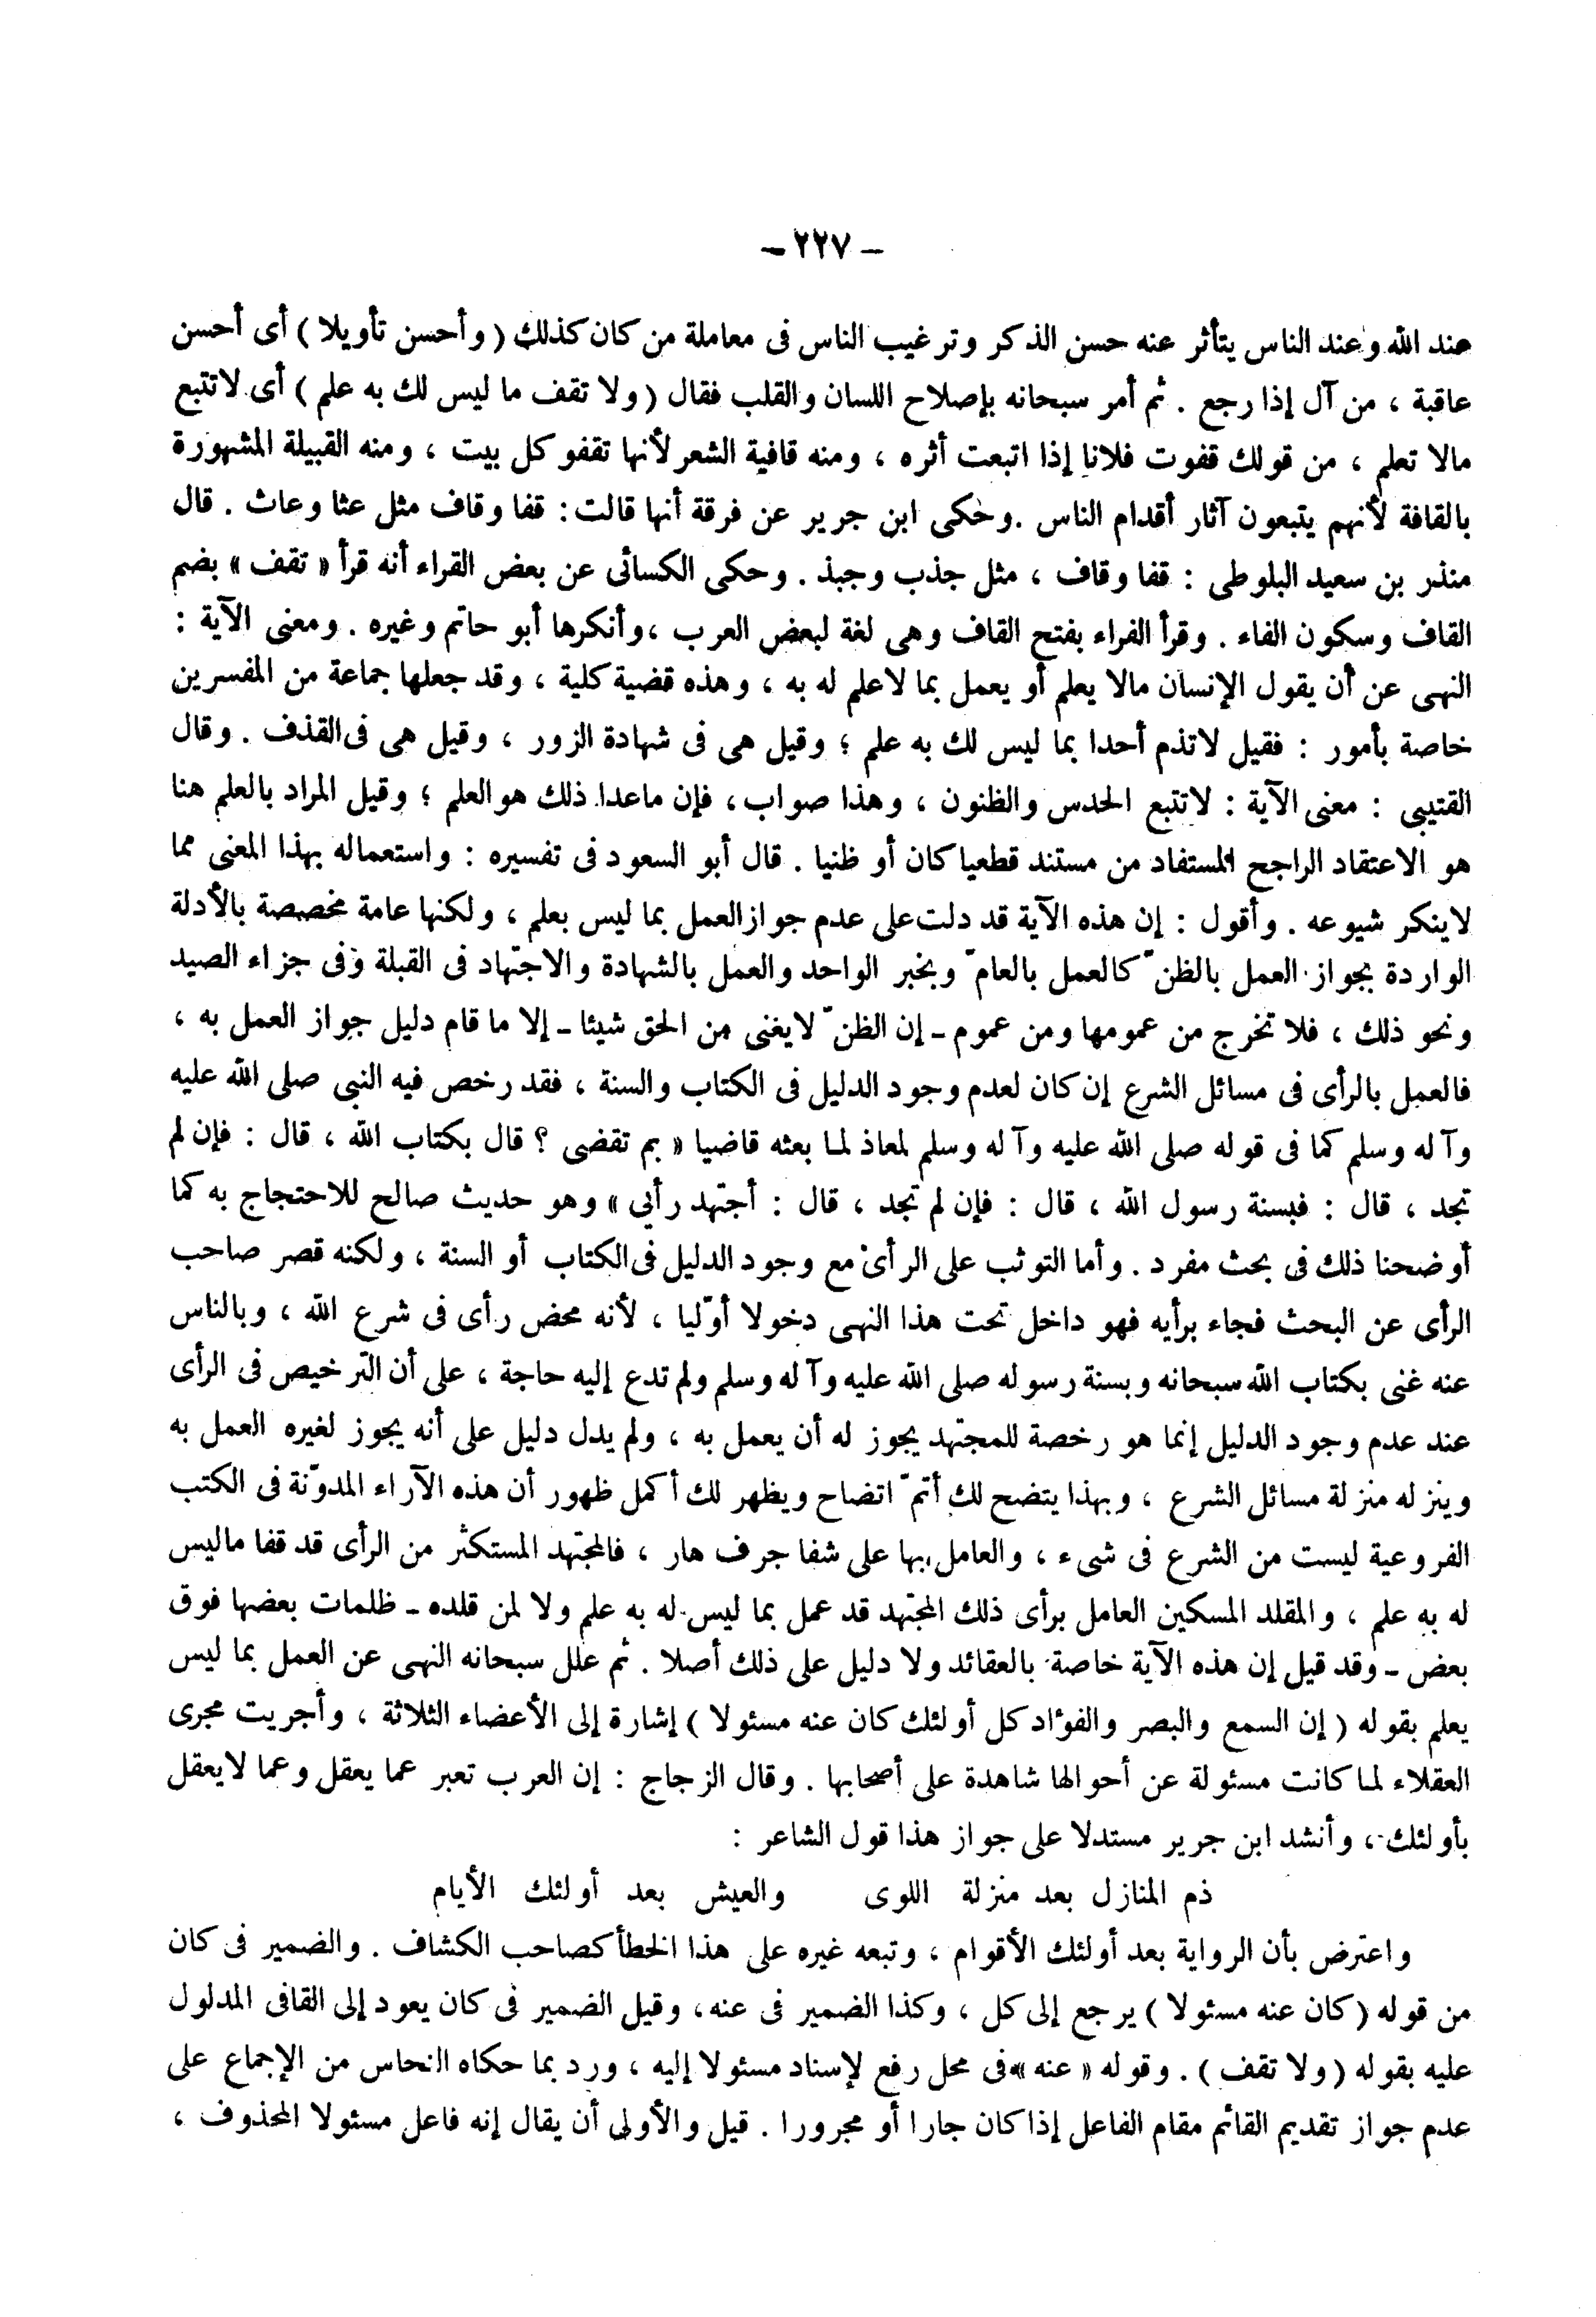 - ٢٢٧ -
عند الله وعند الناس يتأثر عنه حسن الذكر وترغيب الناس فى معاملة من كان كذلك ( وأحسن تأويلا ) أى أحسن
عاقبة ، من آل إذا رجع . ثم أمر سبحانه بإصلاح اللسان والقلب فقال ( ولا تقف ما ليس لك به علم ) أى لاتتبع
مالا تعلم ، من قولك قفوت فلانا إذا اتبعت أثره ، ومنه قافية الشعر لأنها تقفو كل بيت ، ومنه القبيلة المشهورة
بالقافة لأنهم يتبعون آثار أقدام الناس . وحكى ابن جرير عن فرقة أنها قالت : قفا وقاف مثل عثا وعاث . قال
منذر بن سعيد البلوطى : قفا وقاف ، مثل جذب وجبذ . وحكى الكسائى عن بعض القراء أنه قرأ « تقف » بضم
القاف وسكون الفاء . وقرأ الفراء بفتح القاف وهى لغة لبعض العرب ، وأنكرها أبو حاتم وغيره . ومعنى الآية :
النهى عن أن يقول الإنسان مالا يعلم أو يعمل بما لاعلم له به ، وهذه قضية كلية ، وقد جعلها جماعة من المفسرين
خاصة بأمور : فقيل لاتذم أحدا بما ليس لك به علم ؛ وقيل هى فى شهادة الزور ، وقيل هى فى القذف . وقال
القتيبى : معنى الآية : لاتتبع الحدس والظنون ، وهذا صواب ، فإن ماعدا ذلك هو العلم ؛ وقيل المراد بالعلم هنا
هو الاعتقاد الراجح المستفاد من مستند قطعيا كان أو ظنيا . قال أبو السعود فى تفسيره : واستعماله بهذا المعنى مما
لاينكر شيوعه . وأقول : إن هذه الآية قد دلت على عدم جواز العمل بما ليس بعلم ، ولكنها عامة مخصصة بالأدلة
الواردة بجواز العمل بالظنّ كالعمل بالعامّ وبخبر الواحد والعمل بالشهادة والاجتهاد فى القبلة وفى جزاء الصيد
ونحو ذلك ، فلا تخرج من عمومها ومن عموم - إن الظنّ لايغنى من الحق شيئا - إلا ما قام دليل جواز العمل به ،
فالعمل بالرأى فى مسائل الشرع إن كان لعدم وجود الدليل فى الكتاب والسنة ، فقد رخص فيه النبى صلى الله عليه
وآله وسلم كما فى قوله صلى الله عليه وآله وسلم لمعاذ لما بعثه قاضيا « بم تقضى ؟ قال بكتاب الله ، قال : فإن لم
تجد ، قال : فبسنة رسول الله ، قال : فإن لم تجد ، قال : أجتهد رأيى » وهو حديث صالح للاحتجاج به كما
أوضحنا ذلك فى بحث مفرد . وأما التوثب على الرأى مع وجود الدليل فى الكتاب أو السنة ، ولكنه قصر صاحب
الرأى عن البحث فجاء برأيه فهو داخل تحت هذا النهى دخولا أوّليا ، لأنه محض رأى فى شرع الله ، وبالناس
عنه غنى بكتاب الله سبحانه وبسنة رسوله صلى الله عليه وآله وسلم ولم تدع إليه حاجة ، على أن الترخيص فى الرأى
عند عدم وجود الدليل إنما هو رخصة للمجتهد يجوز له أن يعمل به ، ولم يدل دليل على أنه يجوز لغيره العمل به
وينزله منزلة مسائل الشرع ، وبهذا يتضح لك أتمّ اتضاح ويظهر لك أكمل ظهور أن هذه الآراء المدوّنة فى الكتب
الفروعية ليست من الشرع فى شىء ، والعامل بها على شفا جرف هار ، فالمجتهد المستكثر من الرأى قد قفا ماليس
له به علم ، والمقلد المسكين العامل برأى ذلك المجتهد قد عمل بما ليس له به علم ولا لمن قلده - ظلمات بعضها فوق
بعض - وقد قيل إن هذه الآية خاصة بالعقائد ولا دليل على ذلك أصلا . ثم علل سبحانه النهى عن العمل بما ليس
يعلم بقوله ( إن السمع والبصر والفؤاد كل أولئك كان عنه مسئولا ) إشارة إلى الأعضاء الثلاثة ، وأجريت مجرى
العقلاء لما كانت مسئولة عن أحوالها شاهدة على أصحابها . وقال الزجاج : إن العرب تعبر عما يعقل وعما لايعقل
بأولئك ، وأنشد ابن جرير مستدلا على جواز هذا قول الشاعر :
ذم المنازل بعد منزلة اللوى والعيش بعد أولئك الأيام
واعترض بأن الرواية بعد أولئك الأقوام ، وتبعه غيره على هذا الخطأ كصاحب الكشاف . والضمير فى كان
من قوله ( كان عنه مسئولا ) يرجع إلى كل ، وكذا الضمير فى عنه ، وقيل الضمير فى كان يعود إلى القافى المدلول
عليه بقوله ( ولا تقف ) . وقوله « عنه » فى محل رفع لإسناد مسئولا إليه ، ورد بما حكاه النحاس من الإجماع على
عدم جواز تقديم القائم مقام الفاعل إذا كان جارا أو مجرورا . قيل والأولى أن يقال إنه فاعل مسئولا المحذوف ،